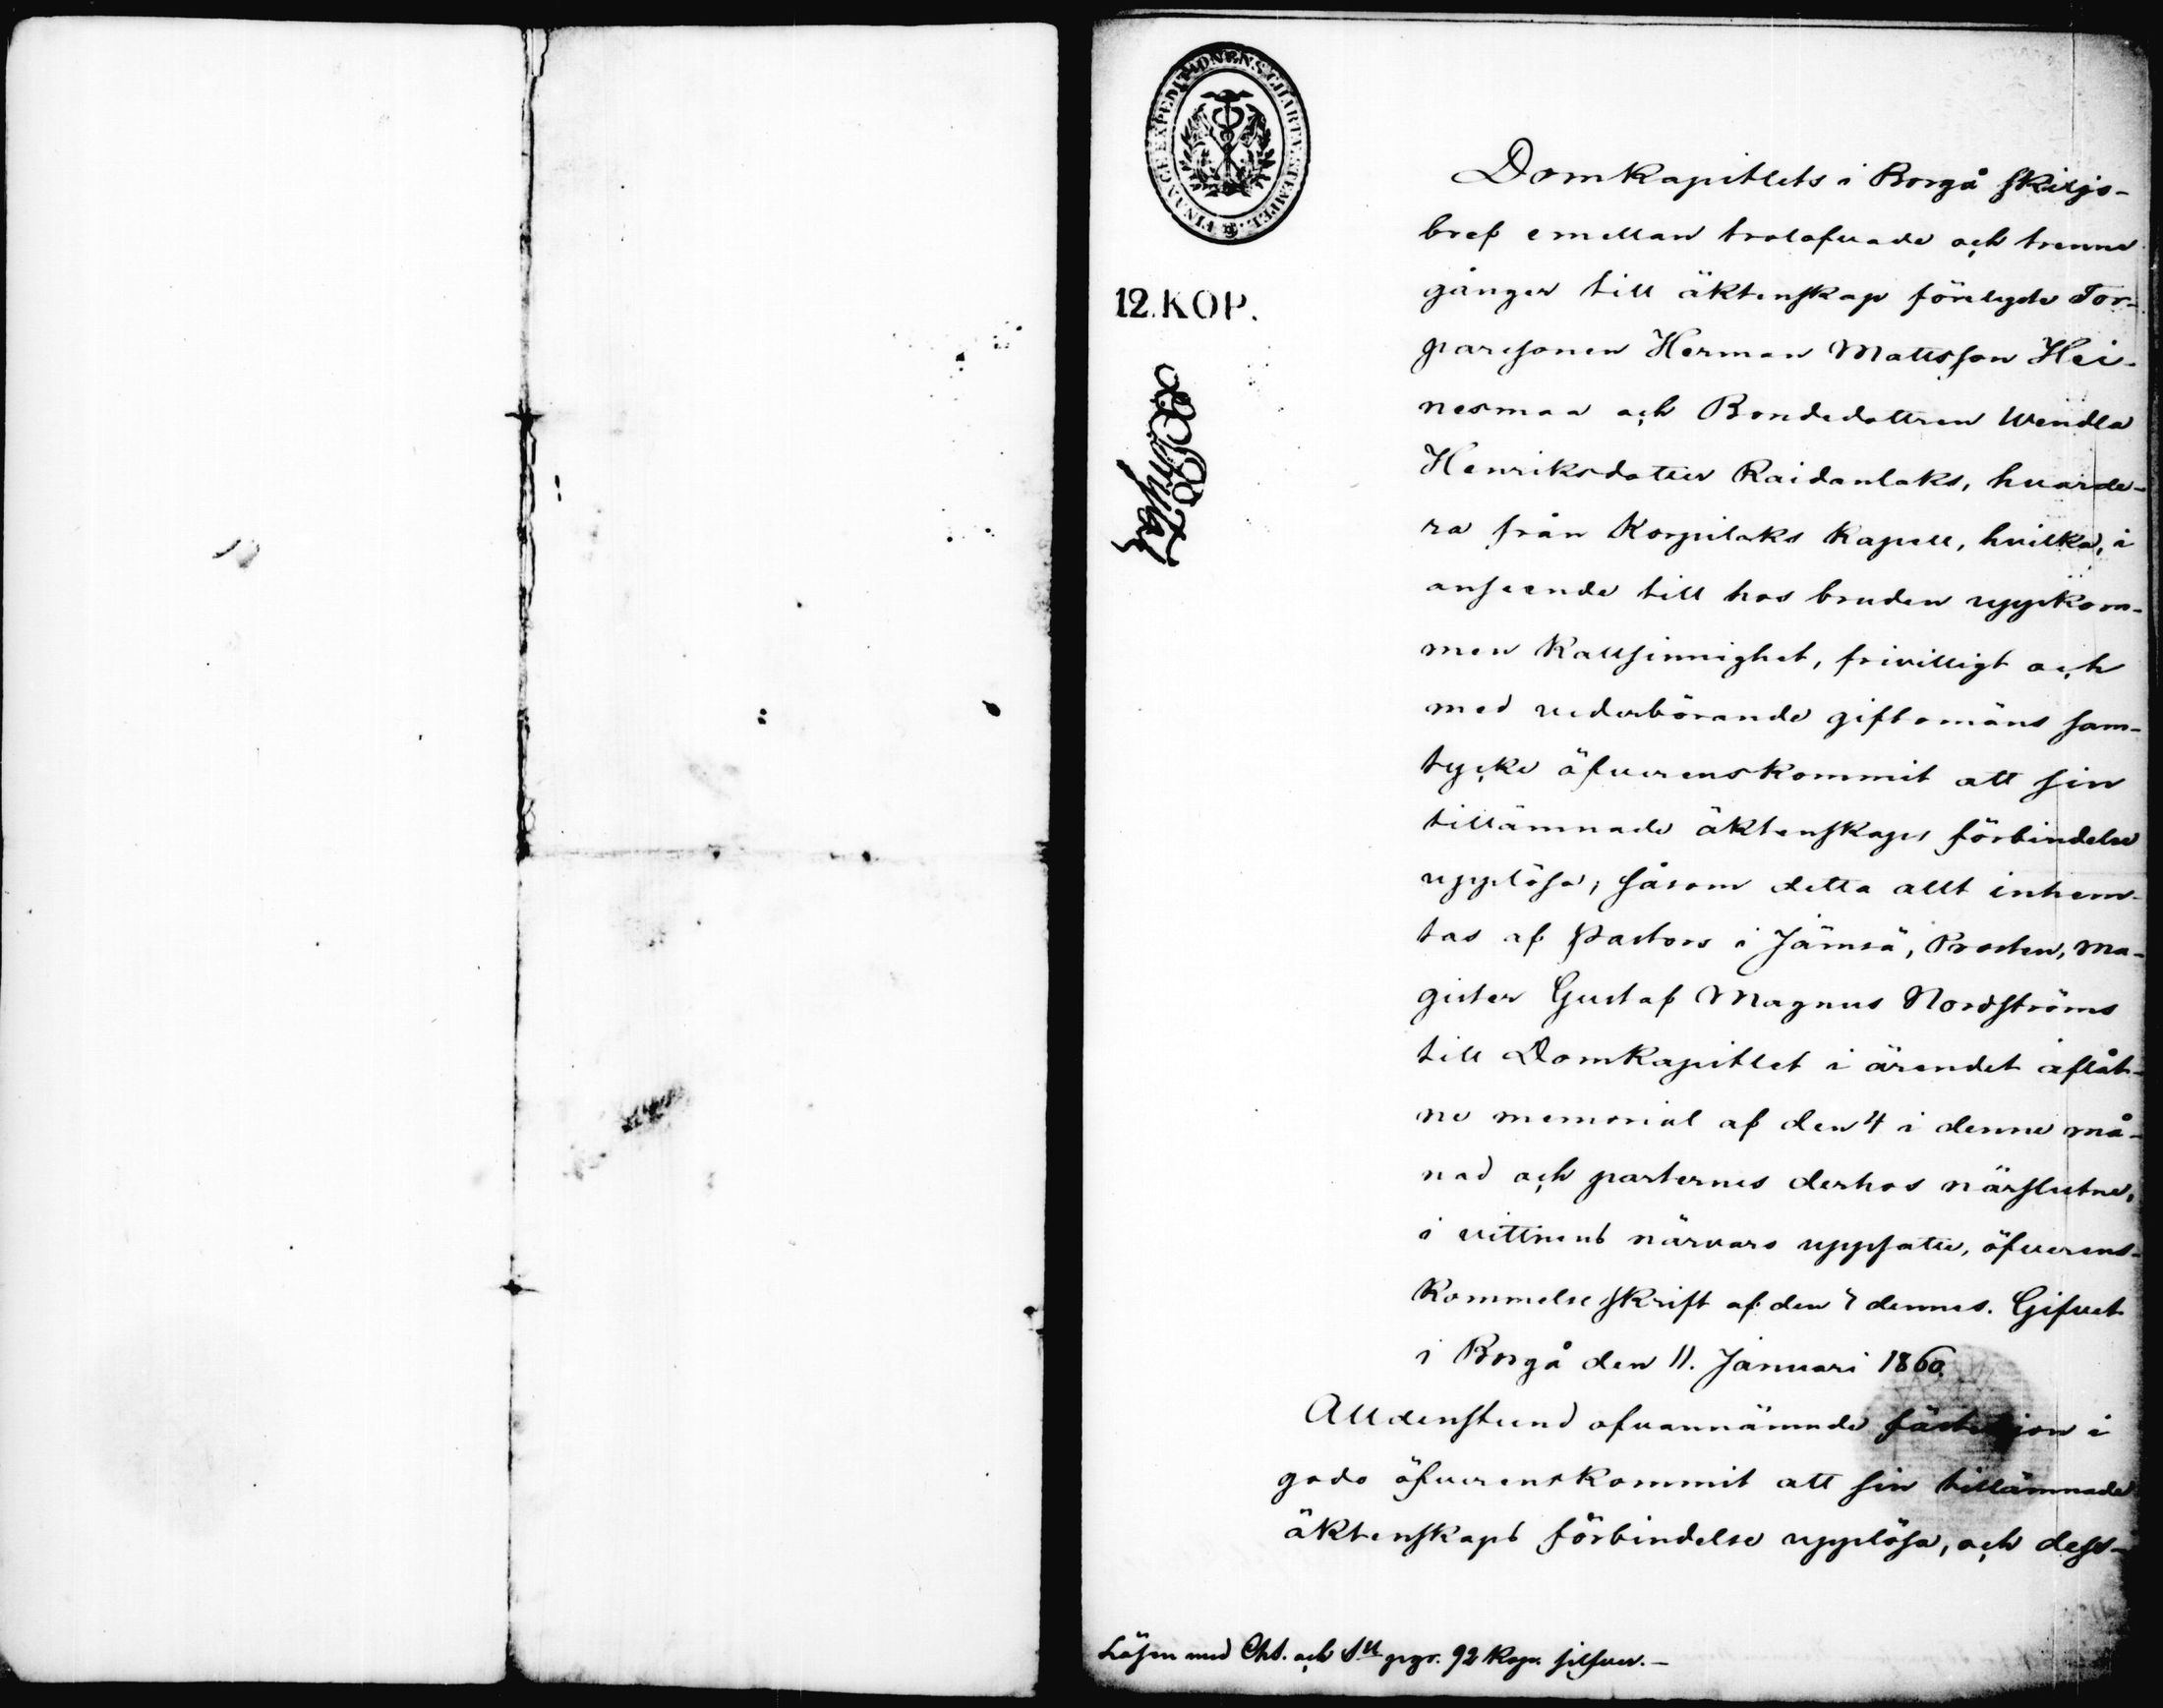 FINANCE EXPEDITIONENS CHARTÆ STEMPEL.
12. KOP.
Domkapitlets i Borgå skiljo-
bref emellan trolofvade och trenne
gånger till äktenskap förelyste Tor-
paresonen Herman Mattsson Hei-
nesmaa och Bondedottren Wendla
Henriksdotter Raidanlaks, hvarde-
ra från Korpilaks Kapell, hvilka, i
anseende till hos bruden uppkom-
men Kallsinnighet, frivilligt och
med vederbörande giftomäns sam-
tycke öfverenskommit att sin
tillämnade äktenskaps förbindelse
upplösa; såsom detta allt inhem-
tas af Pastors i Jämsä, Prosten, Ma-
gister Gustaf Magnus Nordströms
till Domkapitlet i ärendet aflåt-
ne memorial af den 4 i denne må-
nad och parternes derhos närslutne,
i vittnens närvaro uppsatte, öfverens-
kommelse skrift af den dennes. Gifvet
i Borgå den 11. Januari 1860.
Alldenstund ofvannämnde i
godo öfverenskommit att sin tillämnade
äktenskaps förbindelse upplösa, och dess-
Lösen med Cht. och kop. silfver.-